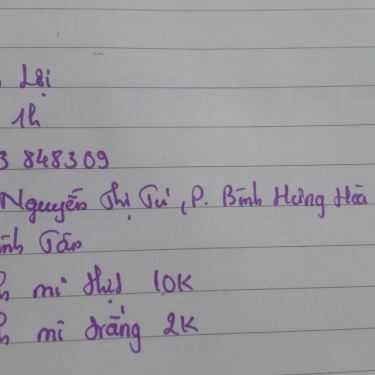 Lại
1h
3 848309
Nguyễn Thị Tú, P. Bình Hưng Hoà
Tân
mì thịt 10K
mì trắng 2K